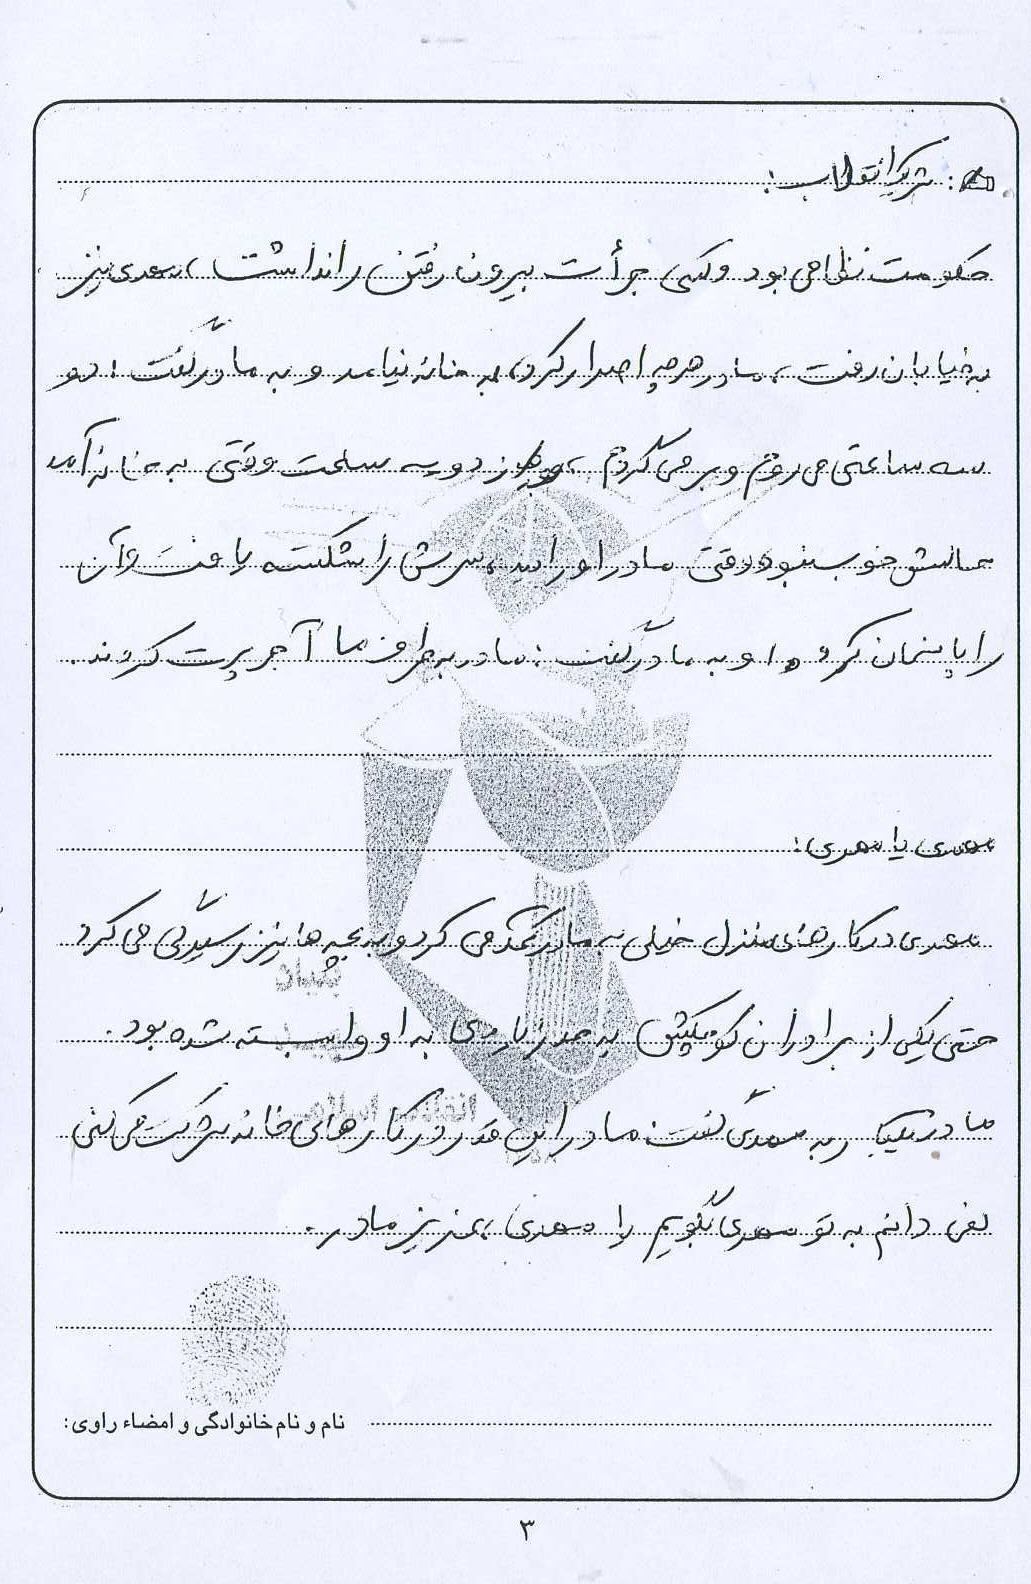 : شریک انقلاب:
حکومت نظامی بود و کسی جرأت بیرون رفتن را نداشت، مهدی نیز
به خیابان رفت، مادر هرچه اصرار کرد، به خانه نیامد و به مادر گفت: دو
سه ساعتی می روم و بر می گردم، بعد از دو سه ساعت وقتی به خانه آمد
حالش خوب نبود وقتی مادر او را دید، سرش را شکسته یافت و آن
را پانسمان کرد. او به مادر گفت: مادر به طرف ما آجر پرت کردند.
مهدی یا مهری:
مهدی در کارهای منزل خیلی به مادر کمک می کرد و به بچه ها نیز رسیدگی می کرد
حتی یکی از برادران کوچکش به حد زیادی به او وابسته شده بود.
مادر یکبار به مهدی گفت: مادر این قدر در کارهای خانه شرکت می کنی
نمی دانم به تو مهری بگویم یا مهدی، عزیز مادر.
نام و نام خانوادگی و امضاء راوی:
۳